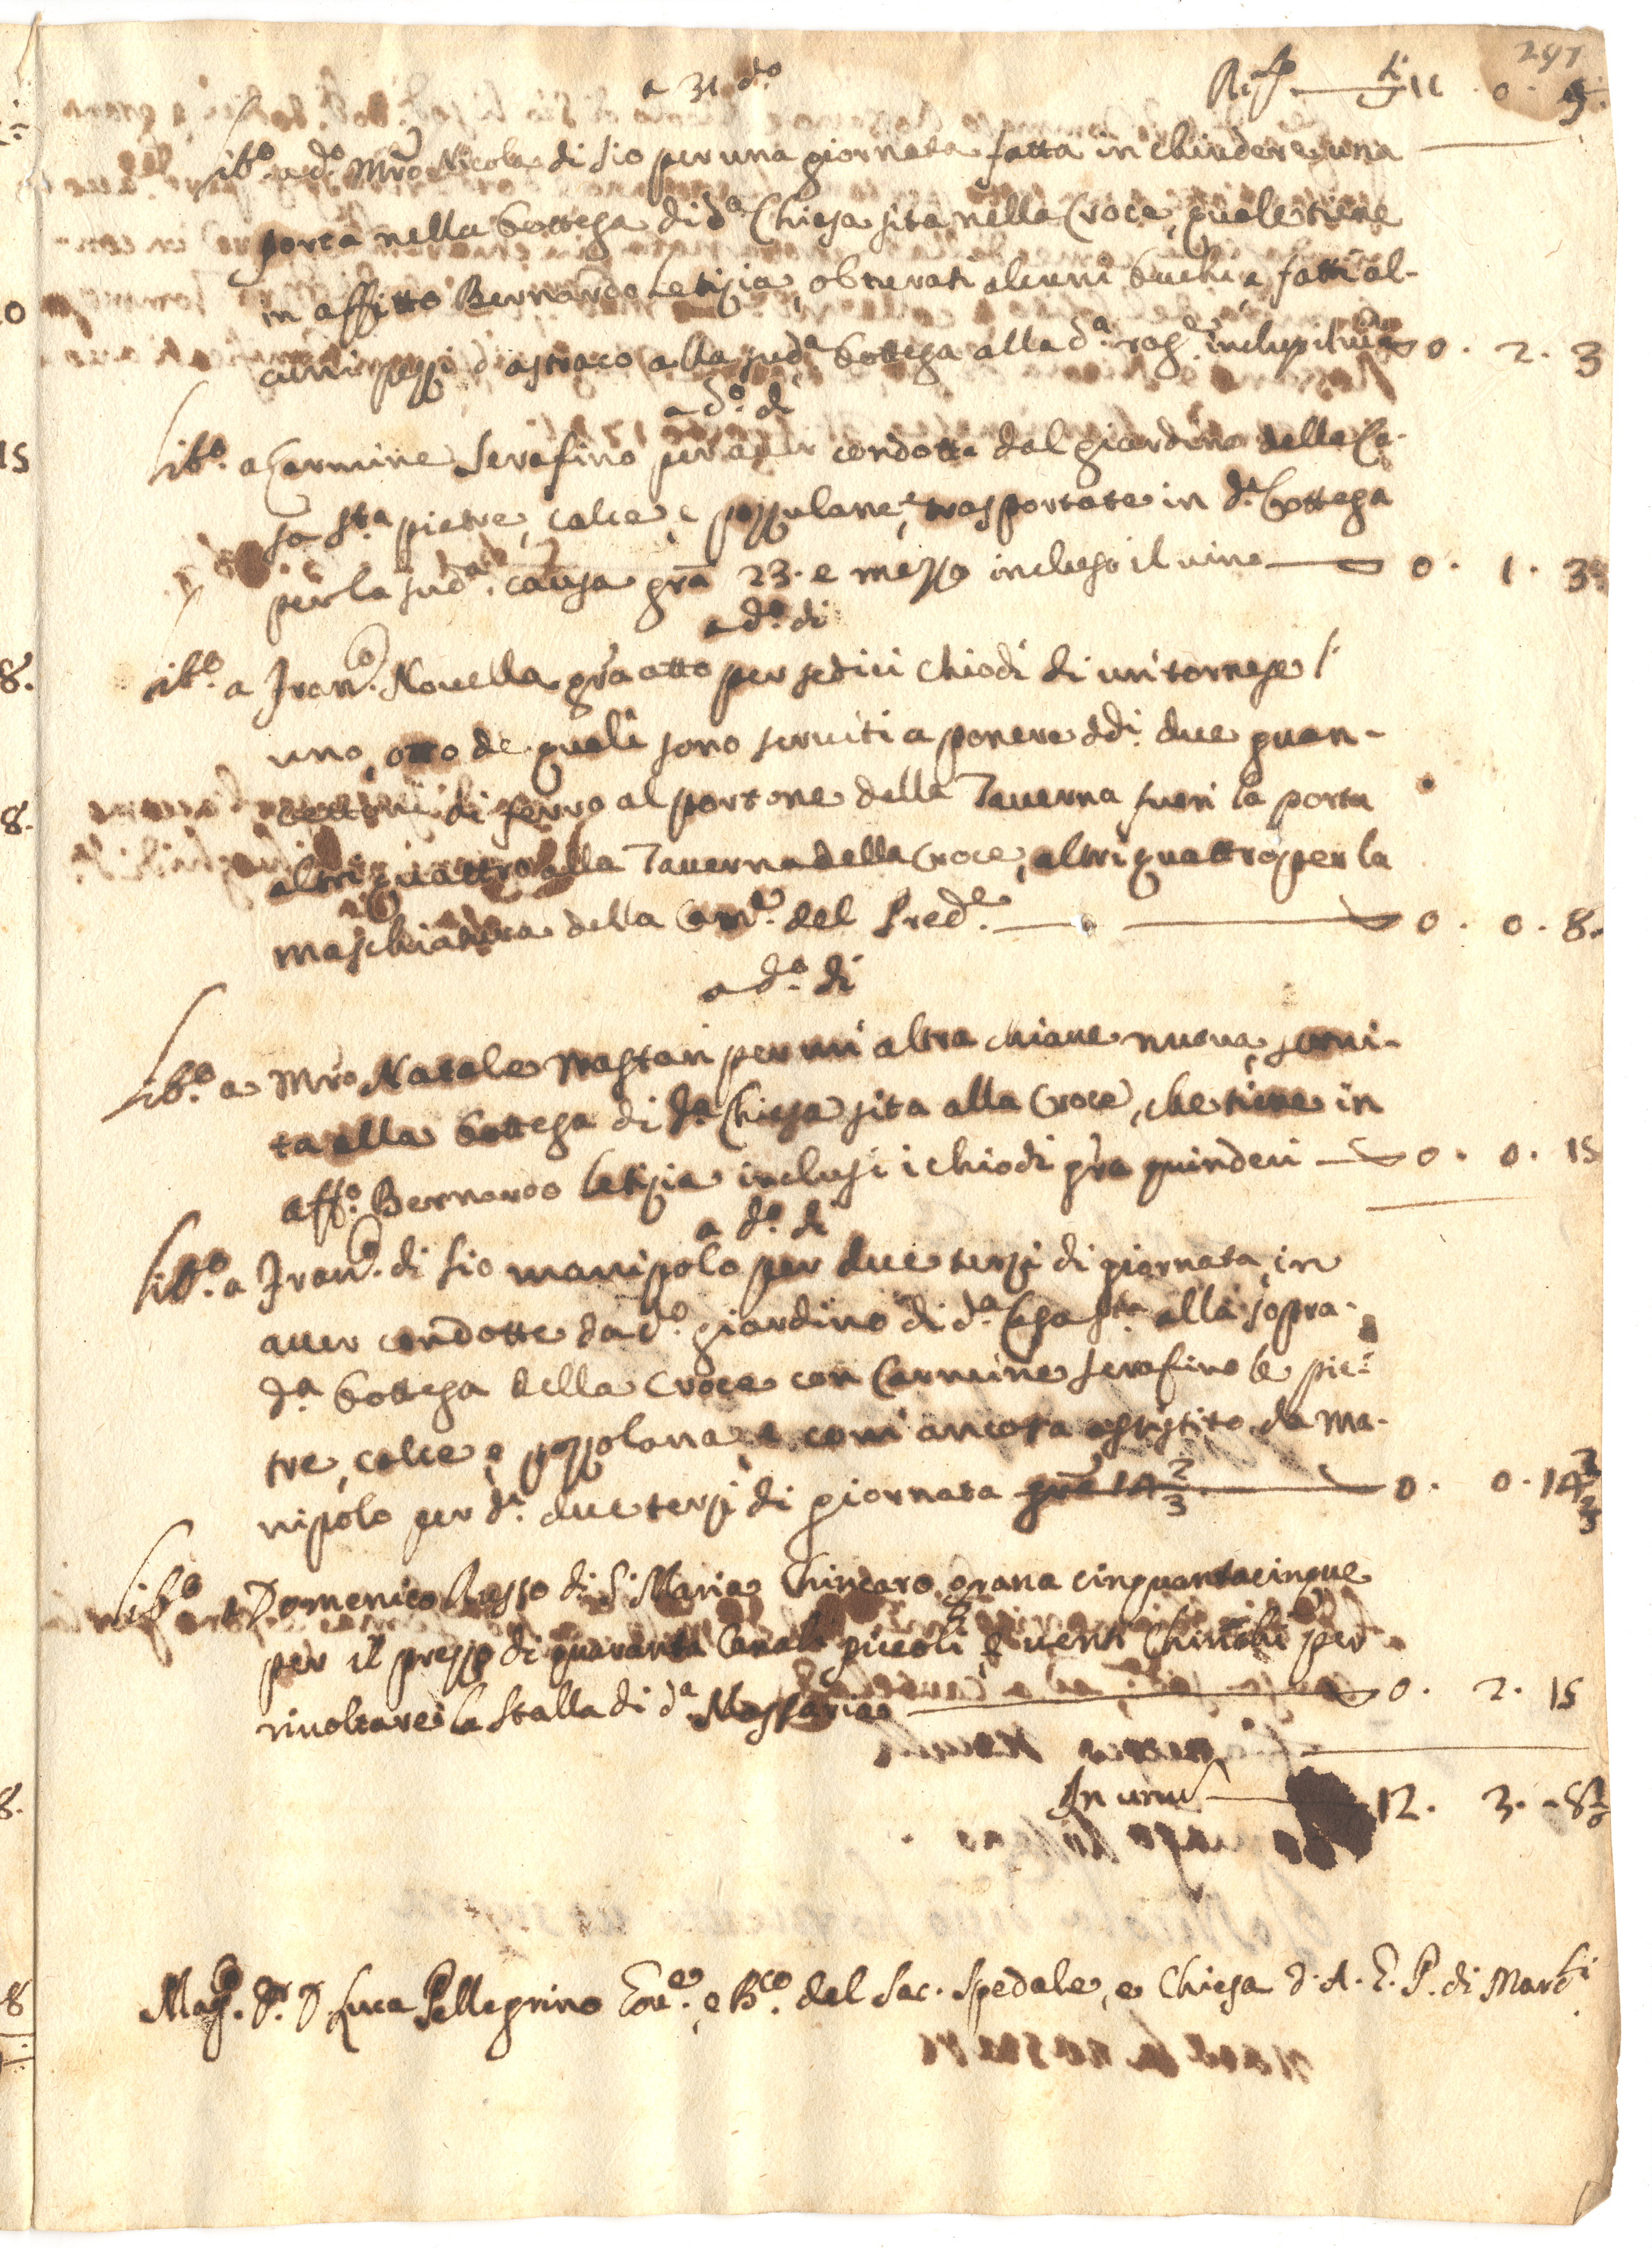 297
a 31 do.
Rip.to — di 11 . 0 . 9.
lib.o a do. Mro Nicola di Lio per una giornata fatta in chiudere una
porta nella bottega di da. Chiesa sita nella Croce, quale tiene
in affitto Bernardo Letizia, otturati alcuni buchi e fatti al-
cuni pezzi d'astraco alla suda. bottega alla da. rag.e incluso il vino 0 . 2 . 3
a do. di
lib.o a Carmine Serafino per aver condotta dal giardino della Ca-
sa Sta. pietre, calce, e pozzulane, trasportate in da. bottega
per la suda. causa gra 23. e mezzo incluso il vino — 0 . 1 . 3
a do. di
lib.o a Fran.co Novella gra otto per sedici chiodi di un tornese l'
uno, otto de quali sono serviti a ponere ddi. due guan-
di ferro al portone della Taverna fuori la porta
altri quattro alla Taverna della Croce, altri quattro per la
maschiatura della Cam.a del Pred.e — 0 . 0 . 8.
a do. di
lib.o a Mro Natale per un altra chiave nuova servi-
ta alla bottega di da. Chiesa sita alla Croce, che tiene in
aff.o Bernardo Letizia inclusi i chiodi gra quindeci — 0 . 0 . 15
a do. di
lib.o a Fran.co di Lio manipolo per due terzi di giornata in
aver condotte da do. giardino di da. Casa Sta. alla sopra-
da. bottega della Croce con Carmine Serafino le pie-
tre, calce e pozzolana, e com'ancora assistito da ma-
nipolo per de. due terzi di giornata gra 14 2/3 — 0 . 0 . 14 2/3
lib.o a Domenico Russo di S. Maria grana cinquantacinque
per il prezzo di quaranta Canali piccoli, e venti per
rivoltare la stalla di da. Massaria — 0 . 2 . 15
In unu — 12 . 3 . 8
Mag. Dr. D Luca Pellegrino e del Sac. Spedale, e Chiesa D. A. G. P. di